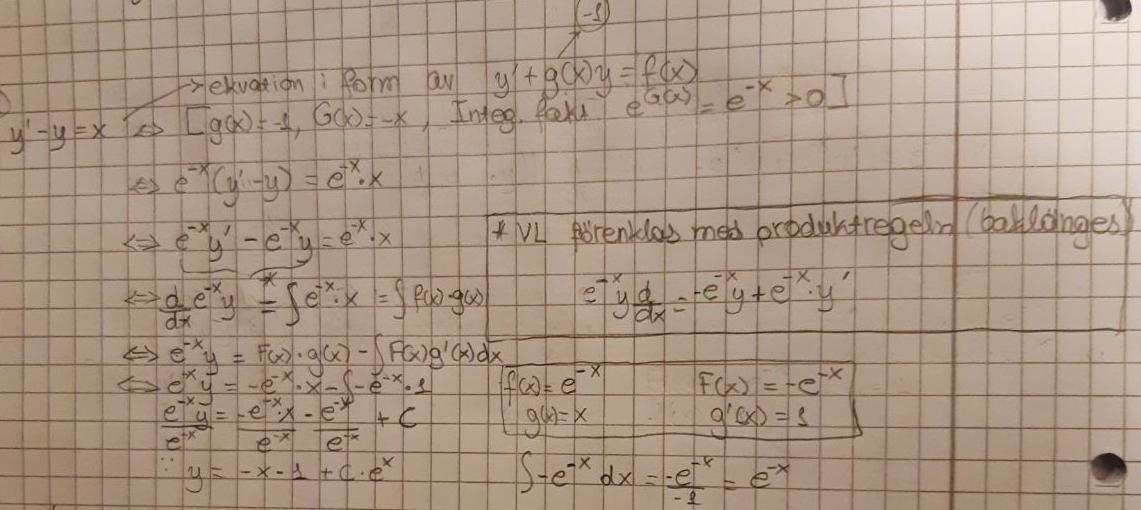 (-1)
→ ekvation i form av y' + g(x)y = f(x)
y' - y = x ⇔ [g(x) = -1, G(x) = -x, Integ. fakt e^{G(x)} = e^{-x} > 0]
⇔ e^{-x}(y' - y) = e^{-x}·x
⇔ e^{-x}y' - e^{-x}y = e^{-x}·x
* VL förenklas med produktregeln (baklänges)
e^{-x}y d/dx = -e^{-x}y + e^{-x}·y'
⇔ d/dx e^{-x}y =* ∫e^{-x}·x = ∫f(x)·g(x)
⇔ e^{-x}y = F(x)·g(x) - ∫F(x)g'(x)dx
⇔ e^{-x}y = -e^{-x}·x - ∫-e^{-x}·1
f(x) = e^{-x} F(x) = -e^{-x}
g(x) = x g'(x) = 1
e^{-x}y/e^{-x} = -e^{-x}·x/e^{-x} - e^{-x}/e^{-x} + C
∵ y = -x - 1 + C·e^{x}
∫-e^{-x} dx = -e^{-x}/-1 = e^{-x}